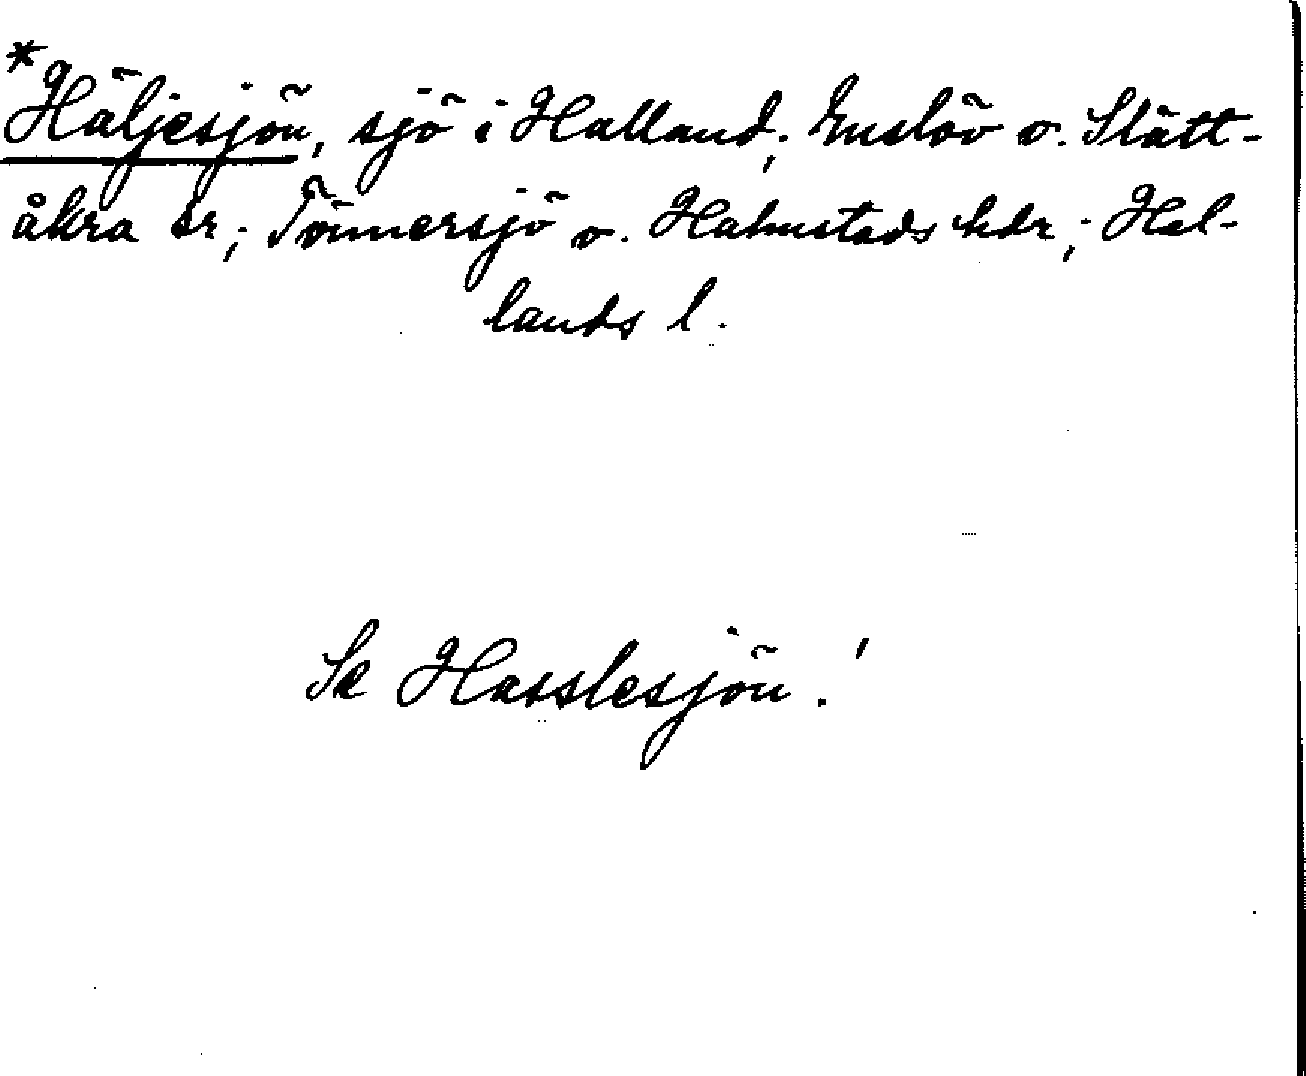 *Häljesjön, sjö i Halland; Enslöv o. Slätt-
åkra sr; Tönnersjö o. Halmstads hdr; Hal-
lands l.
Se Hasslesjön!